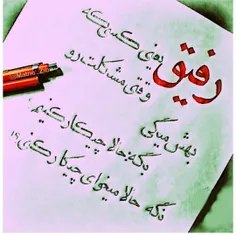 رفیق
یعنی کسی که
وقتی مشکلت رو
بهش میگی
بگه: حالا چیکار کنیم،
نگه حالا میخوای چیکار کنی؟!